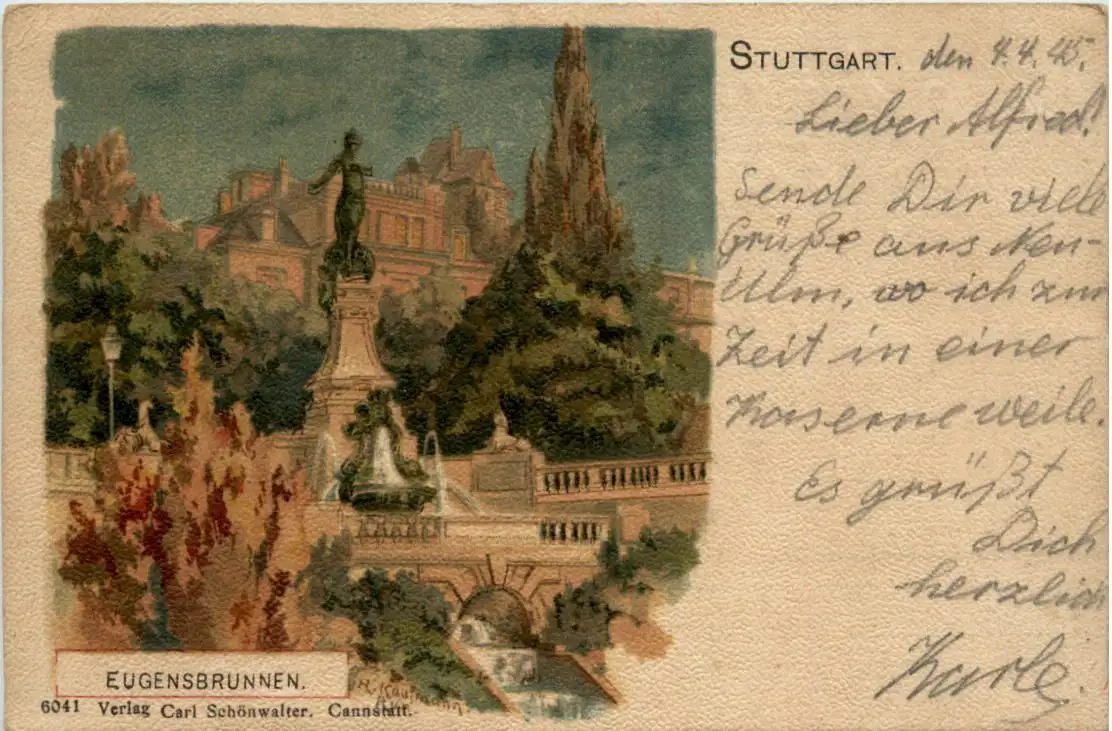 STUTTGART. den 4.4.45.
Lieber Alfred!
sende Dir viele
Grüße aus Neu-
Ulm, wo ich zur
Zeit in einer
Kaserne weile.
Es grüßt
Dich
herzlich
Karle.
EUGENSBRUNNEN.
6041 Verlag Carl Schönwalter. Cannstatt.